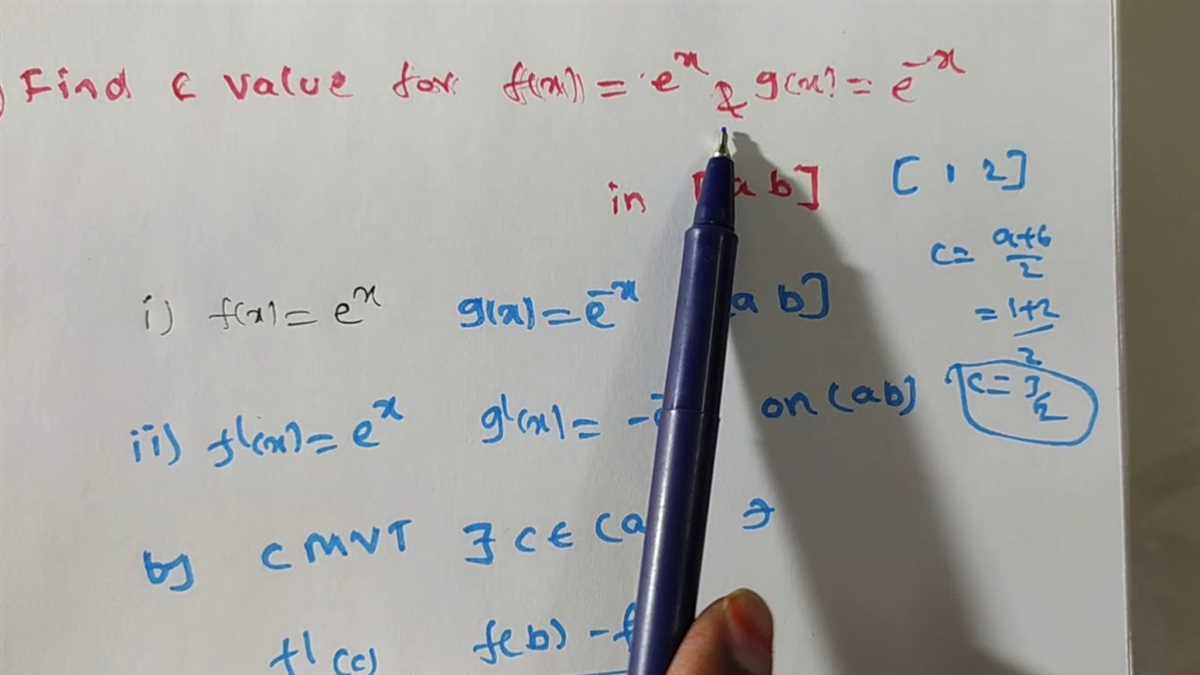 ) Find c value for f(x) = e^x & g(x) = e^-x
in [a b] [1 2]
c = a+b/2
= 1+2/2
c = 3/2
i) f(x) = e^x g(x) = e^-x a b]
ii) f'(x) = e^x g'(x) = - on (a b)
by CMVT ∃ c ∈ (a ∋
f'(c) f(b) - f